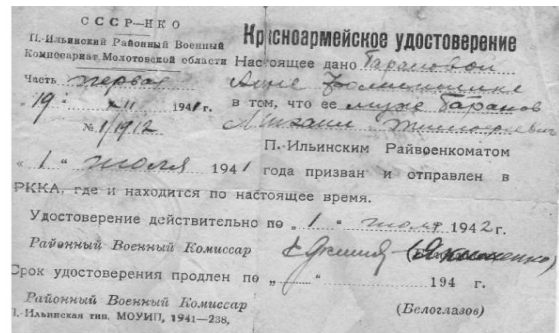 СССР—НКО
П.-Ильинский Районный Военный
Комиссариат Молотовской области
Часть первая
„19“ XII 1941 г.
№ 1/1912
Красноармейское удостоверение
Настоящее дано Барановой
Анне
в том, что ее муж Баранов
Михаил
П.-Ильинским Райвоенкоматом
„1“ июля 1941 года призван и отправлен в
РККА, где и находится по настоящее время.
Удостоверение действительно по „1“ июля 1942 г.
Районный Военный Комиссар
Срок удостоверения продлен по „ “ 194 г.
Районный Военный Комиссар (Белоглазов)
П.-Ильинская тип. МОУИП, 1941—238.